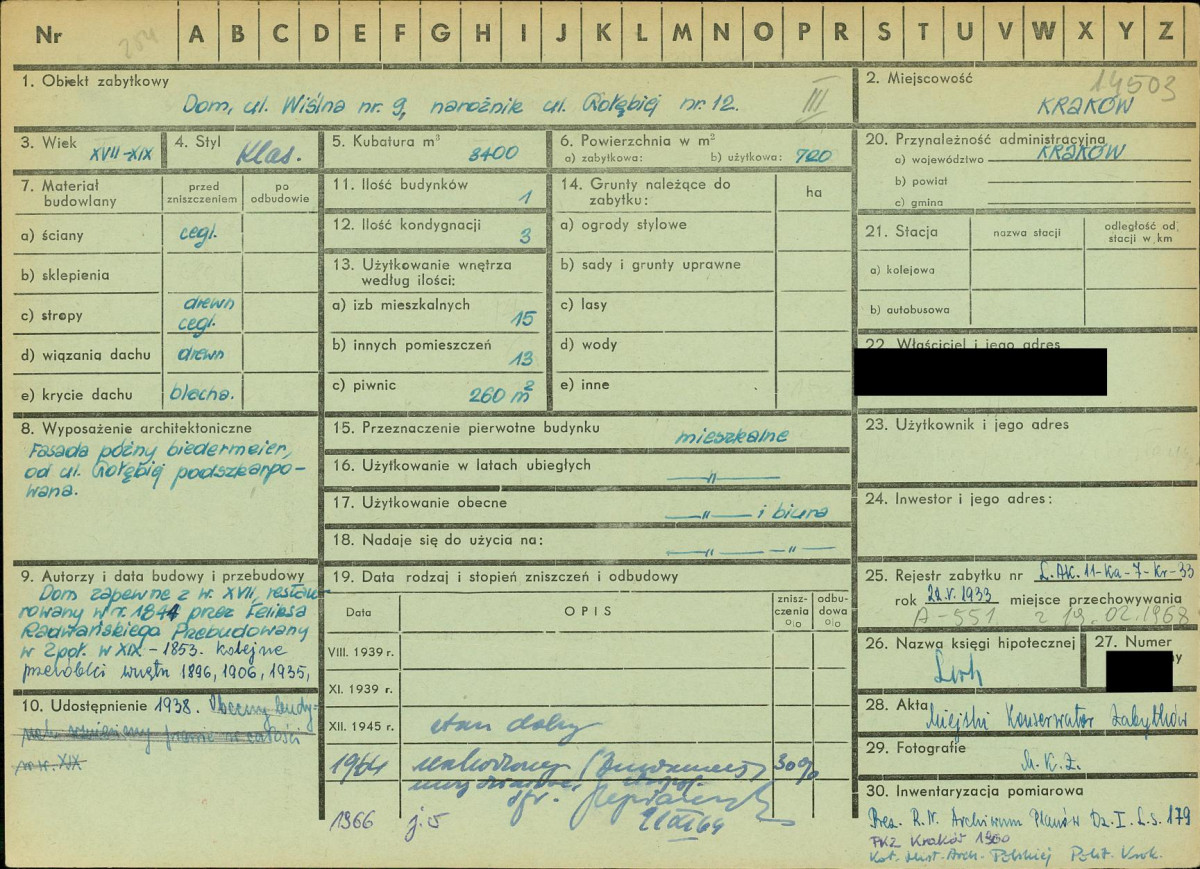 Nr 204 A B C D E F G H I J K L M N O P R S T U V W X Y Z
1. Obiekt zabytkowy
Dom, ul. Wiślna nr. 9, narożnik ul. Gołębiej nr. 12.
III
2. Miejscowość
14503
KRAKÓW
3. Wiek
XVII-XIX
4. Styl
Klas.
5. Kubatura m³
3400
6. Powierzchnia w m²
a) zabytkowa: b) użytkowa: 720
20. Przynależność administracyjna
a) województwo KRAKÓW
b) powiat
c) gmina
7. Materiał budowlany
przed zniszczeniem
po odbudowie
a) ściany cegl.
b) sklepienia
c) stropy drewn cegl.
d) wiązania dachu drewn
e) krycie dachu blacha.
11. Ilość budynków 1
12. Ilość kondygnacji 3
13. Użytkowanie wnętrza
według ilości:
a) izb mieszkalnych 15
b) innych pomieszczeń 13
c) piwnic 260 m²
14. Grunty należące do
zabytku:
ha
a) ogrody stylowe
b) sady i grunty uprawne
c) lasy
d) wody
e) inne
21. Stacja
nazwa stacji
odległość od stacji w km
a) kolejowa
b) autobusowa
22. Właściciel i jego adres
8. Wyposażenie architektoniczne
Fasada późny biedermeier,
od ul. Gołębiej podszkarpo-
wana.
15. Przeznaczenie pierwotne budynku mieszkalne
16. Użytkowanie w latach ubiegłych —"—
17. Użytkowanie obecne —"— i biura
18. Nadaje się do użycia na: —"— —"—
23. Użytkownik i jego adres
24. Inwestor i jego adres:
9. Autorzy i data budowy i przebudowy
Dom zapewne z w. XVII, restau
rowany w r. 1844 przez Feliksa
Radwańskiego Przebudowany
w 2 poł. w XIX - 1853. kolejne
przeróbki wnętrz 1896, 1906, 1935,
10. Udostępnienie 1938. Obecny budy-
nek prawie w całości
w w. XIX
19. Data rodzaj i stopień zniszczeń i odbudowy
Data
OPIS
zniszczenia %
odbudowa %
VIII. 1939 r.
XI. 1939 r.
XII. 1945 r. stan dobry
1964 30%
21 XI 64
1966 j.w
25. Rejestr zabytku nr L.AK. 11-Ka-7-Kr-33
rok 22.V.1933 miejsce przechowywania
A-551 z 19.02.1968
26. Nazwa księgi hipotecznej
27. Numer
ny
28. Akta Miejski Konserwator Zabytków
29. Fotografie
M.K.Z.
30. Inwentaryzacja pomiarowa
Prez. R.N. Archiwum Planów Dz. I. L.S. 179
PKZ Kraków 1960
Kat. Hist. Arch. Polskiej Polit. Krak.